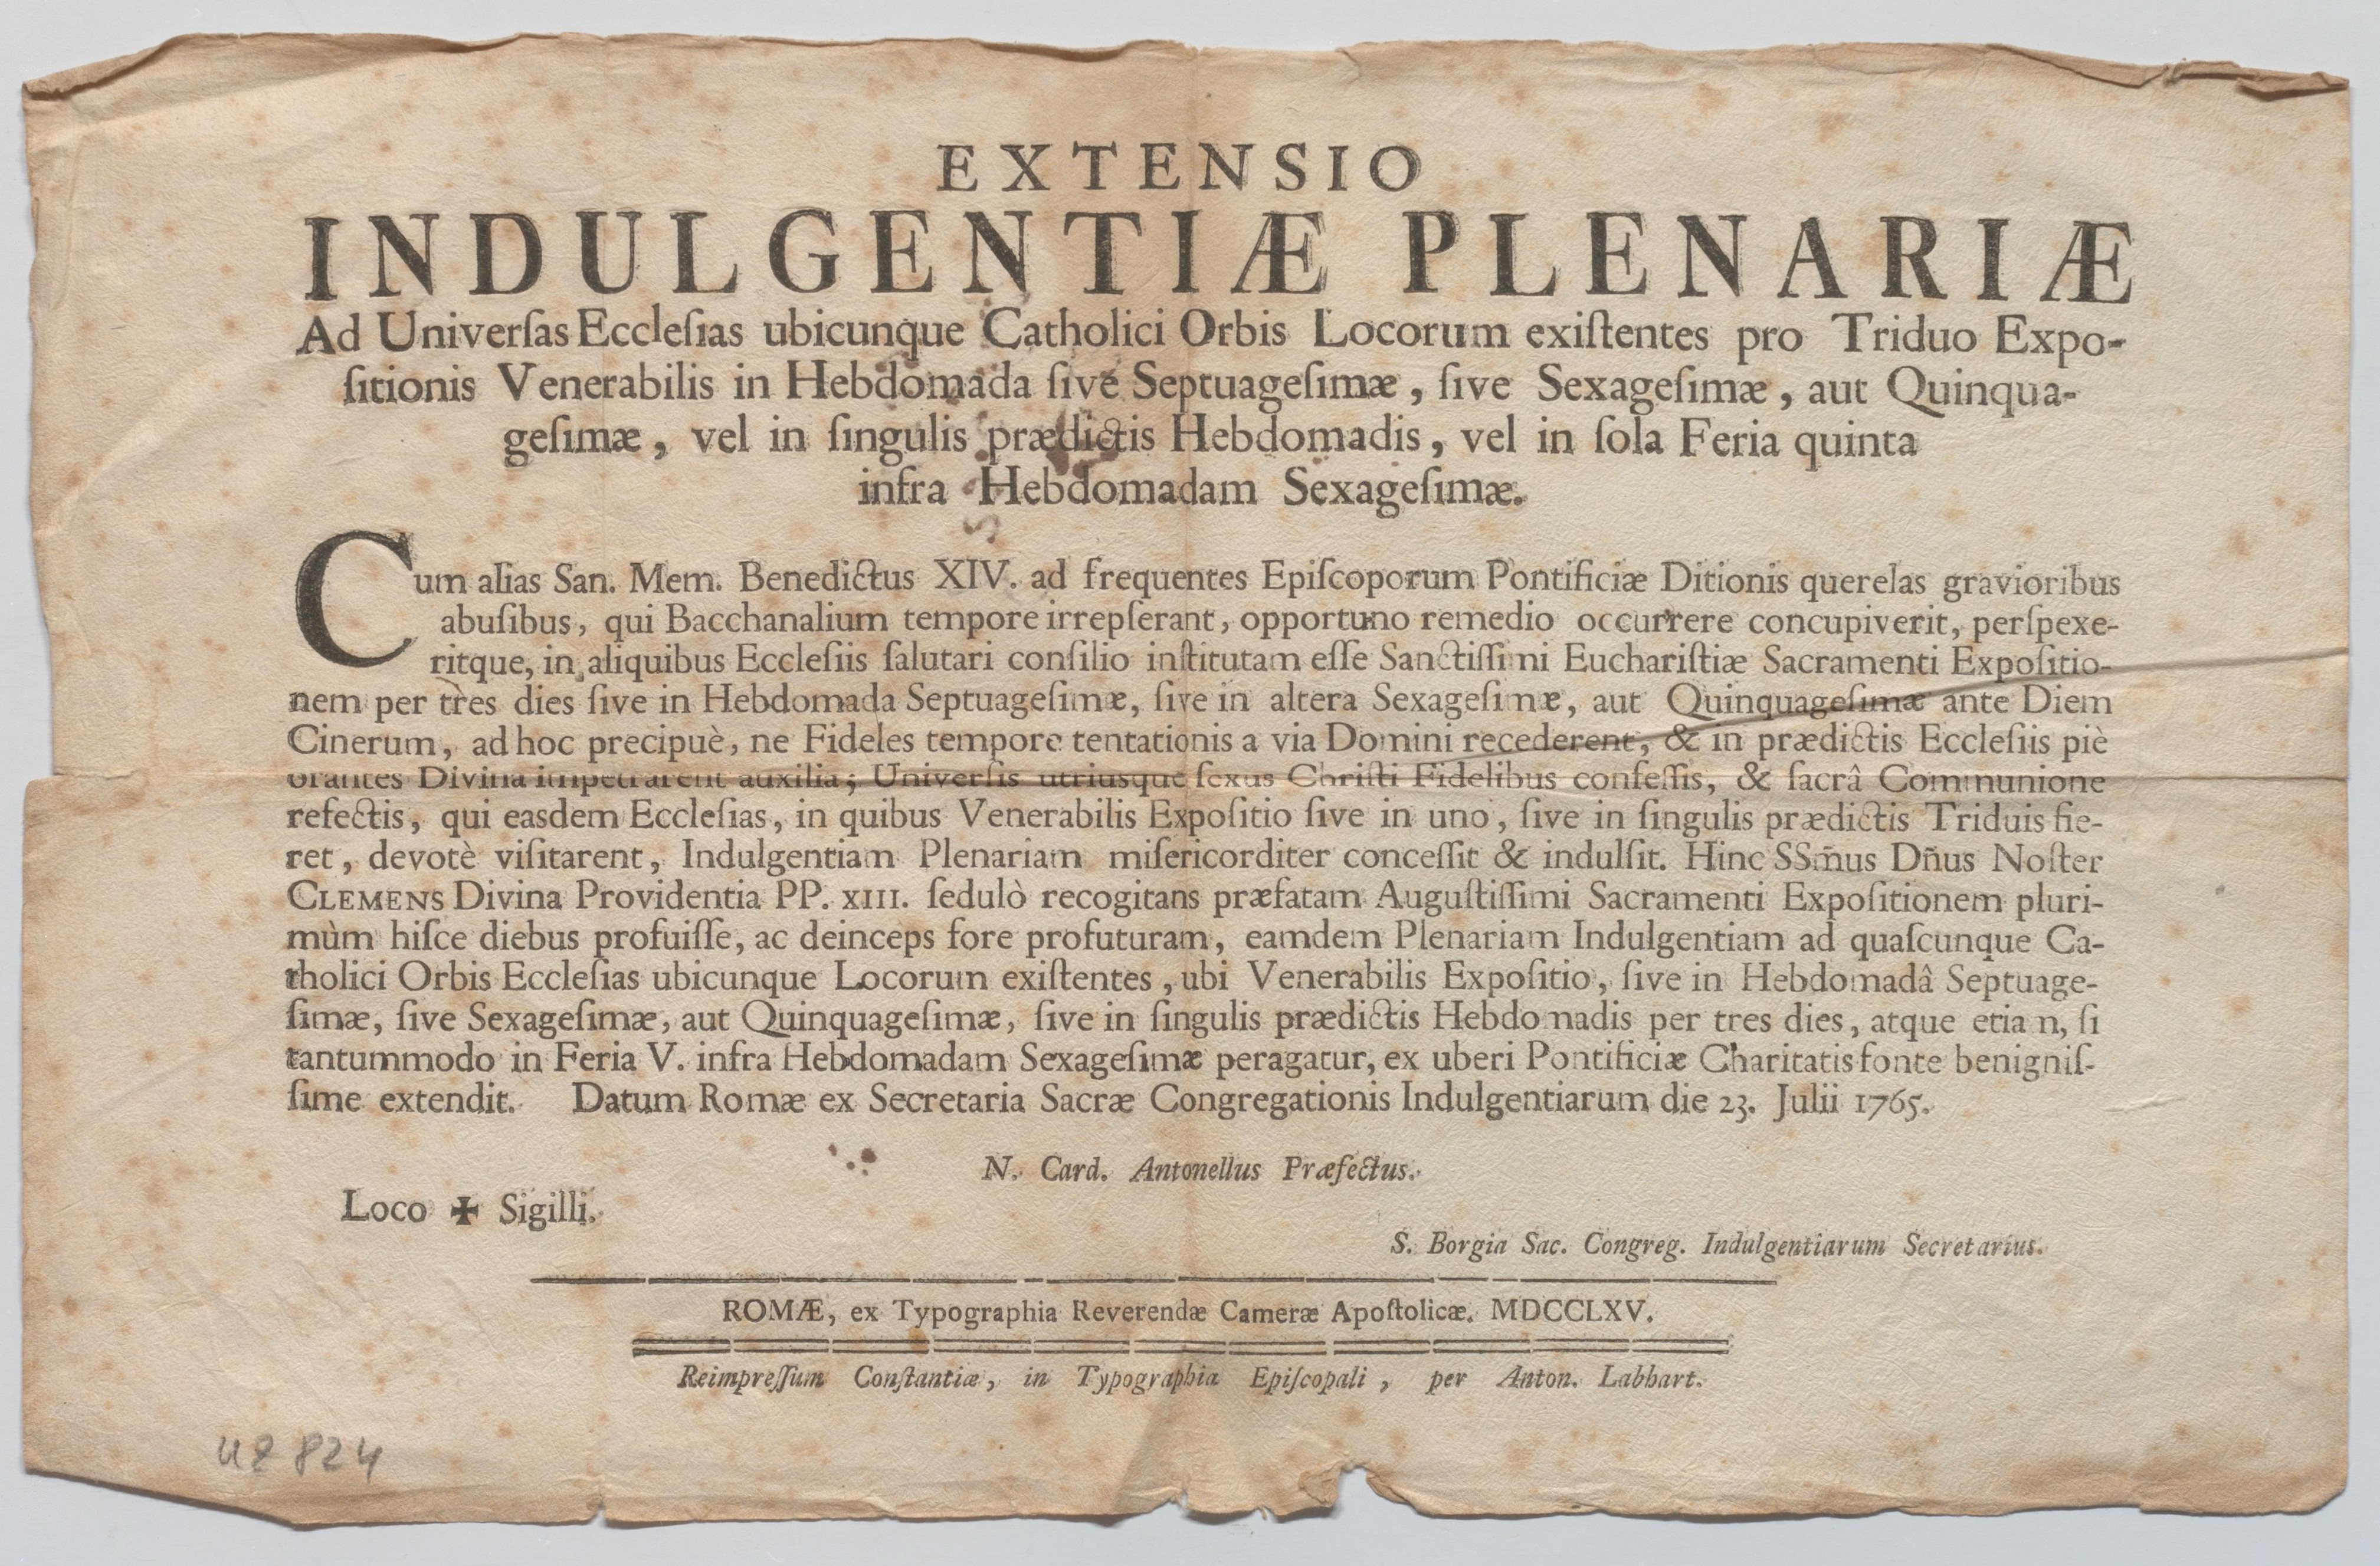 EXTENSIO
INDULGENTIÆ PLENARIÆ
Ad Univerſas Eccleſias ubicunque Catholici Orbis Locorum exiſtentes pro Triduo Expo-
ſitionis Venerabilis in Hebdomada ſive Septuageſimæ, ſive Sexageſimæ, aut Quinqua-
geſimæ, vel in ſingulis prædictis Hebdomadis, vel in ſola Feria quinta
infra Hebdomadam Sexageſimæ.
Cum alias San. Mem. Benedictus XIV. ad frequentes Epiſcoporum Pontificiæ Ditionis querelas gravioribus
abuſibus, qui Bacchanalium tempore irrepſerant, opportuno remedio occurrere concupiverit, perſpexe-
ritque, in aliquibus Eccleſiis ſalutari conſilio inſtitutam eſſe Sanctiſſimi Euchariſtiæ Sacramenti Expoſitio-
nem per tres dies ſive in Hebdomada Septuageſimæ, ſive in altera Sexageſimæ, aut Quinquageſimæ ante Diem
Cinerum, ad hoc precipuè, ne Fideles tempore tentationis a via Domini recederent, & in prædictis Eccleſiis piè
orantes Divina impetrarent auxilia; Univerſis utriusque ſexus Chriſti Fidelibus confeſſis, & ſacrâ Communione
refectis, qui easdem Eccleſias, in quibus Venerabilis Expoſitio ſive in uno, ſive in ſingulis prædictis Triduis fie-
ret, devotè viſitarent, Indulgentiam Plenariam miſericorditer conceſſit & indulſit. Hinc SSm̃us Dñus Noſter
CLEMENS Divina Providentia PP. XIII. ſedulò recogitans præfatam Auguſtiſſimi Sacramenti Expoſitionem pluri-
mùm hiſce diebus profuiſſe, ac deinceps fore profuturam, eamdem Plenariam Indulgentiam ad quaſcunque Ca-
tholici Orbis Eccleſias ubicunque Locorum exiſtentes, ubi Venerabilis Expoſitio, ſive in Hebdomadâ Septuage-
ſimæ, ſive Sexageſimæ, aut Quinquageſimæ, ſive in ſingulis prædictis Hebdomadis per tres dies, atque etiam, ſi
tantummodo in Feria V. infra Hebdomadam Sexageſimæ peragatur, ex uberi Pontificiæ Charitatis fonte benigniſ-
ſime extendit. Datum Romæ ex Secretaria Sacræ Congregationis Indulgentiarum die 23. Julii 1765.
N. Card. Antonellus Præfectus.
Loco ✠ Sigilli.
S. Borgia Sac. Congreg. Indulgentiarum Secretarius.
ROMÆ, ex Typographia Reverendæ Cameræ Apoſtolicæ. MDCCLXV.
Reimpreſſum Conſtantiæ, in Typographia Epiſcopali, per Anton. Labhart.
UZ 824